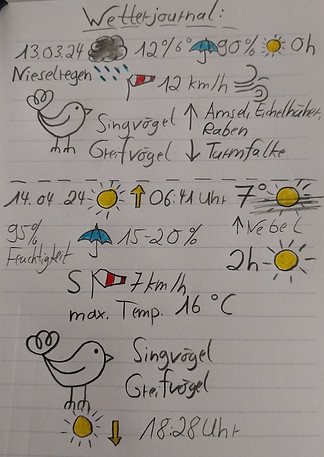 Wetterjournal:
13.03.24 12°/6° 90% 0h
Nieselregen 12 km/h
Singvögel ↑ Amsel, Eichelhäher,
Raben
Greifvögel ↓ Turmfalke
14.04.24 ↑ 06:41 Uhr 7°
95% 15-20% ↑ Nebel
Feuchtigkeit 2h
S 7 km/h
max. Temp. 16 °C
Singvögel
Greifvögel
↓ 18:28 Uhr